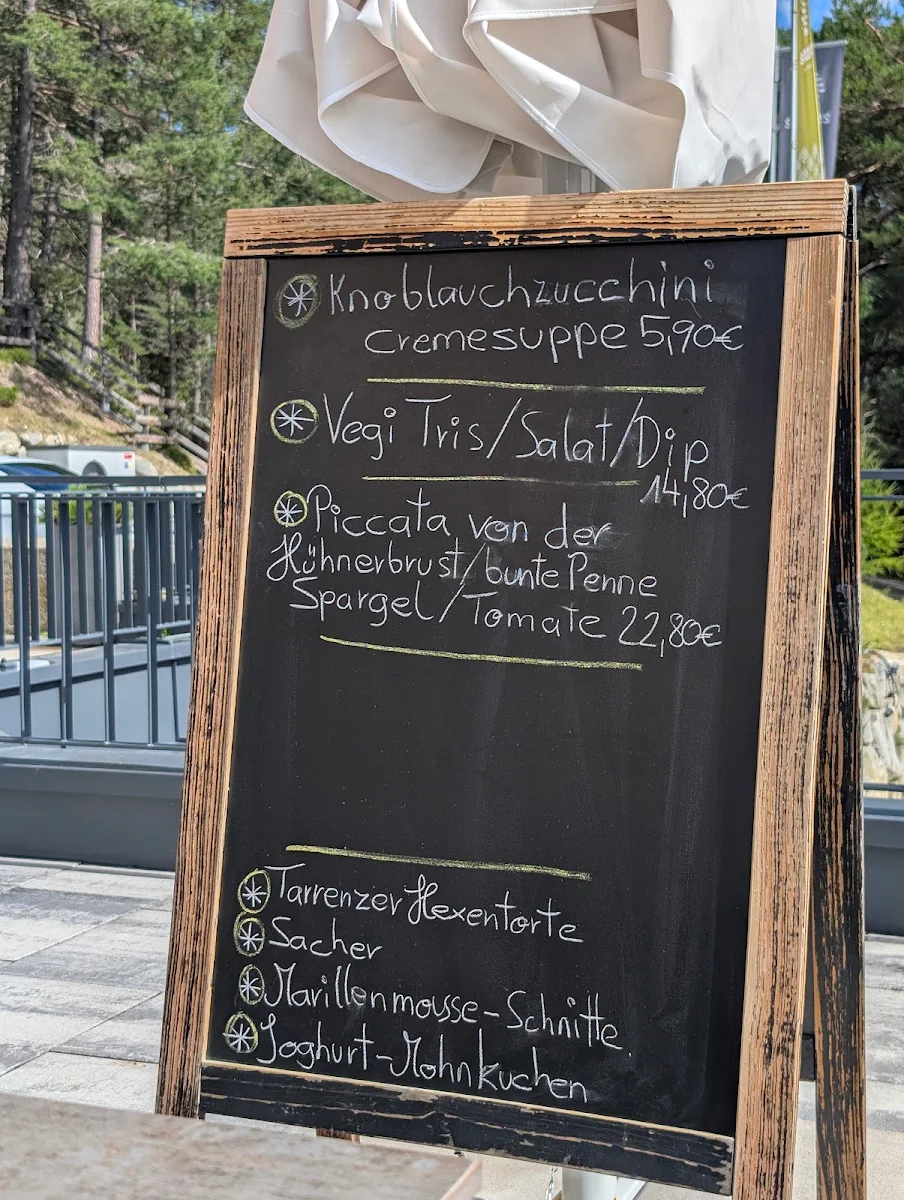 Knoblauchzucchini
cremesuppe 5,90€
Vegi Tris/Salat/Dip
14,80€
Piccata von der
Hühnerbrust/bunte Penne
Spargel/Tomate 22,80€
Tarrenzer Hexentorte
Sacher
Marillenmousse-Schnitte
Joghurt-Mohnkuchen